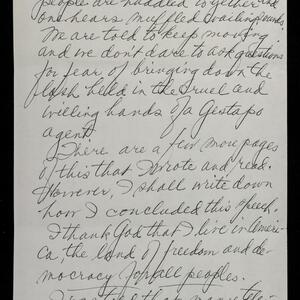 people are huddled together and
one hears muffled wailing sounds.
We are told to keep moving
and we don't dare to ask questions
for fear of bringing down the
lash held in the cruel and
willing hands of a Gestapo
agent.
There are a few more pages
of this that I wrote and read.
However, I shall write down
how I concluded this speech.
I thank God that I live in Ameri-
ca, the land of freedom and de-
mocracy for all peoples.
that